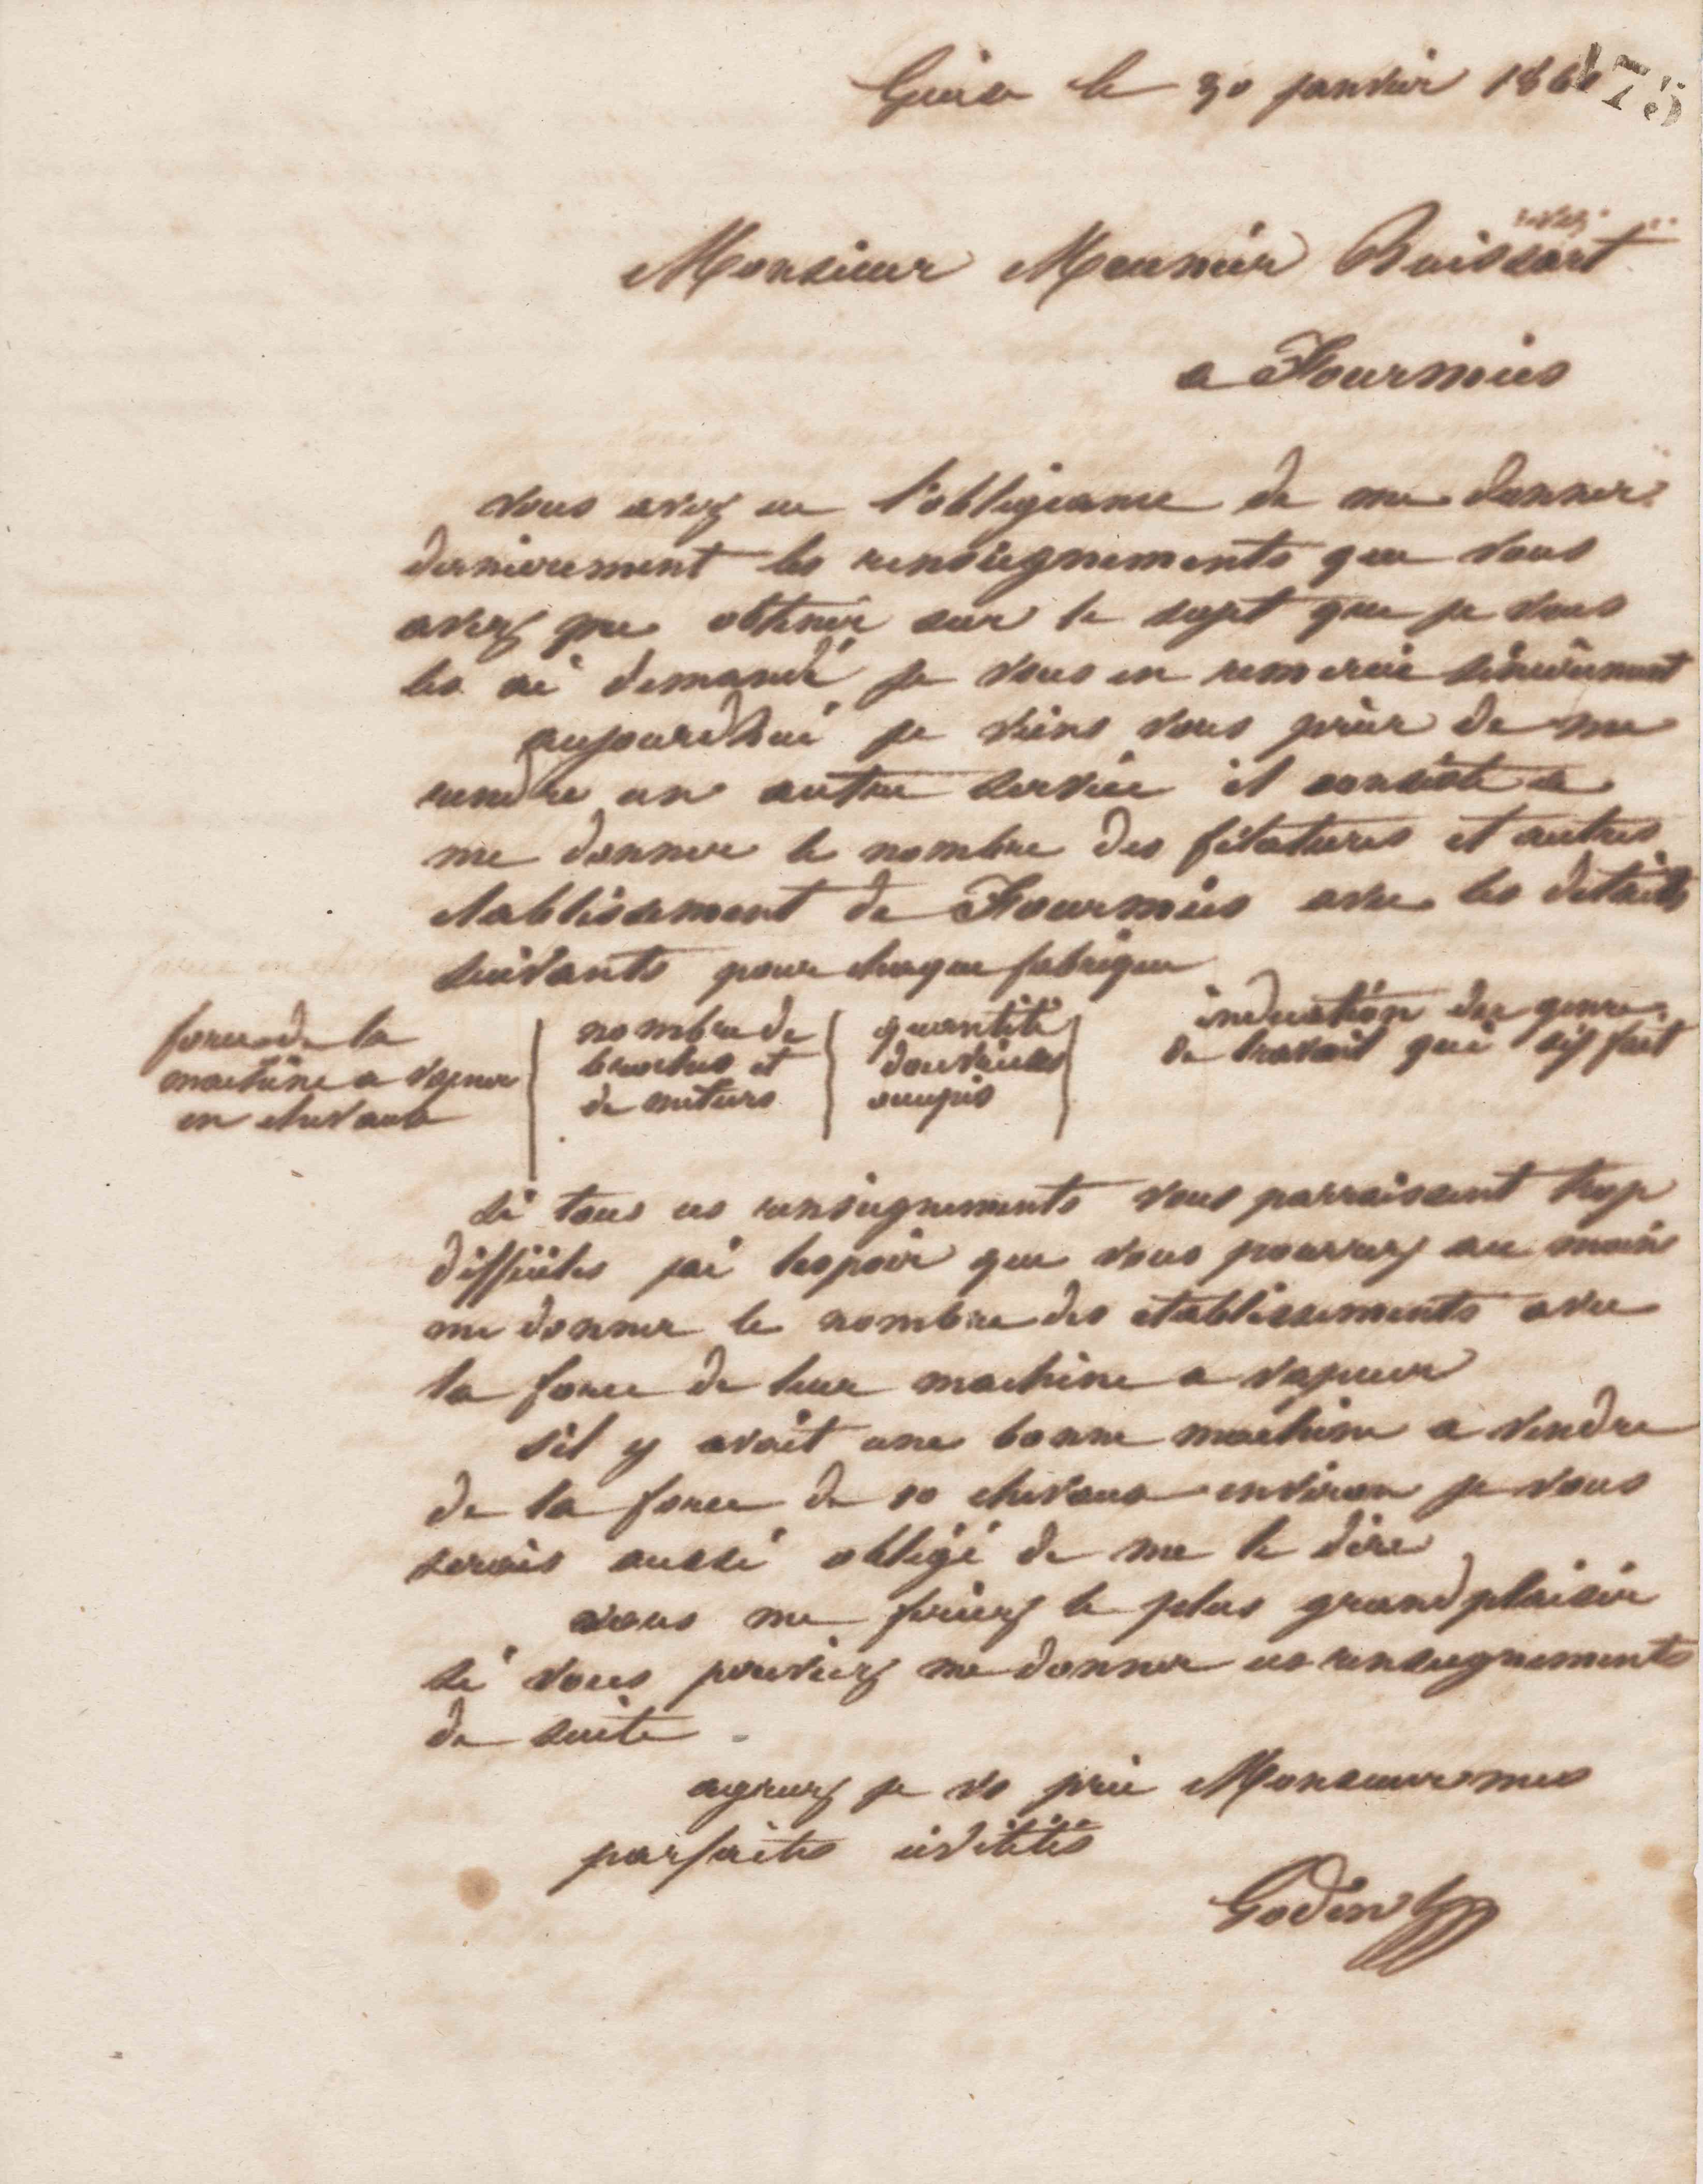 Guise le 30 janvier 186
175
Monsieur Meunier Buissart
a Fourmies
vous avez eu l'obligeance de me donner
dernierement les renseignements que vous
avez pu obtenir sur le sujet que je vous
les ai demandé je vous en remercie sincèrement
aujourdhui je viens vous prier de me
rendre un autre service il consiste a
me donner le nombre des filatures et autres
etablissement de Fourmies avec les details
suivants pour chaque fabrique
force de la
machine a vapeur
en chevaux
nombre de
broches et
de metiers
quantité
douvriers
occupés
indication du genre
de travail qui sy fait
si tous ces renseignements vous parraissent trop
difficiles jai lespoir que vous pourrez au moins
me donner le nombre des etablissements avec
la force de leur machine a vapeur
sil y avait une bonne machine a vendre
de la force de 10 chevaux environ je vous
serais aussi obligé de me le dire
vous me feriez le plus grand plaisir
si vous pouviez me donner ces renseignements
de suite
agreez je vs prie Monsieur mes
parfaites civilités
Godin